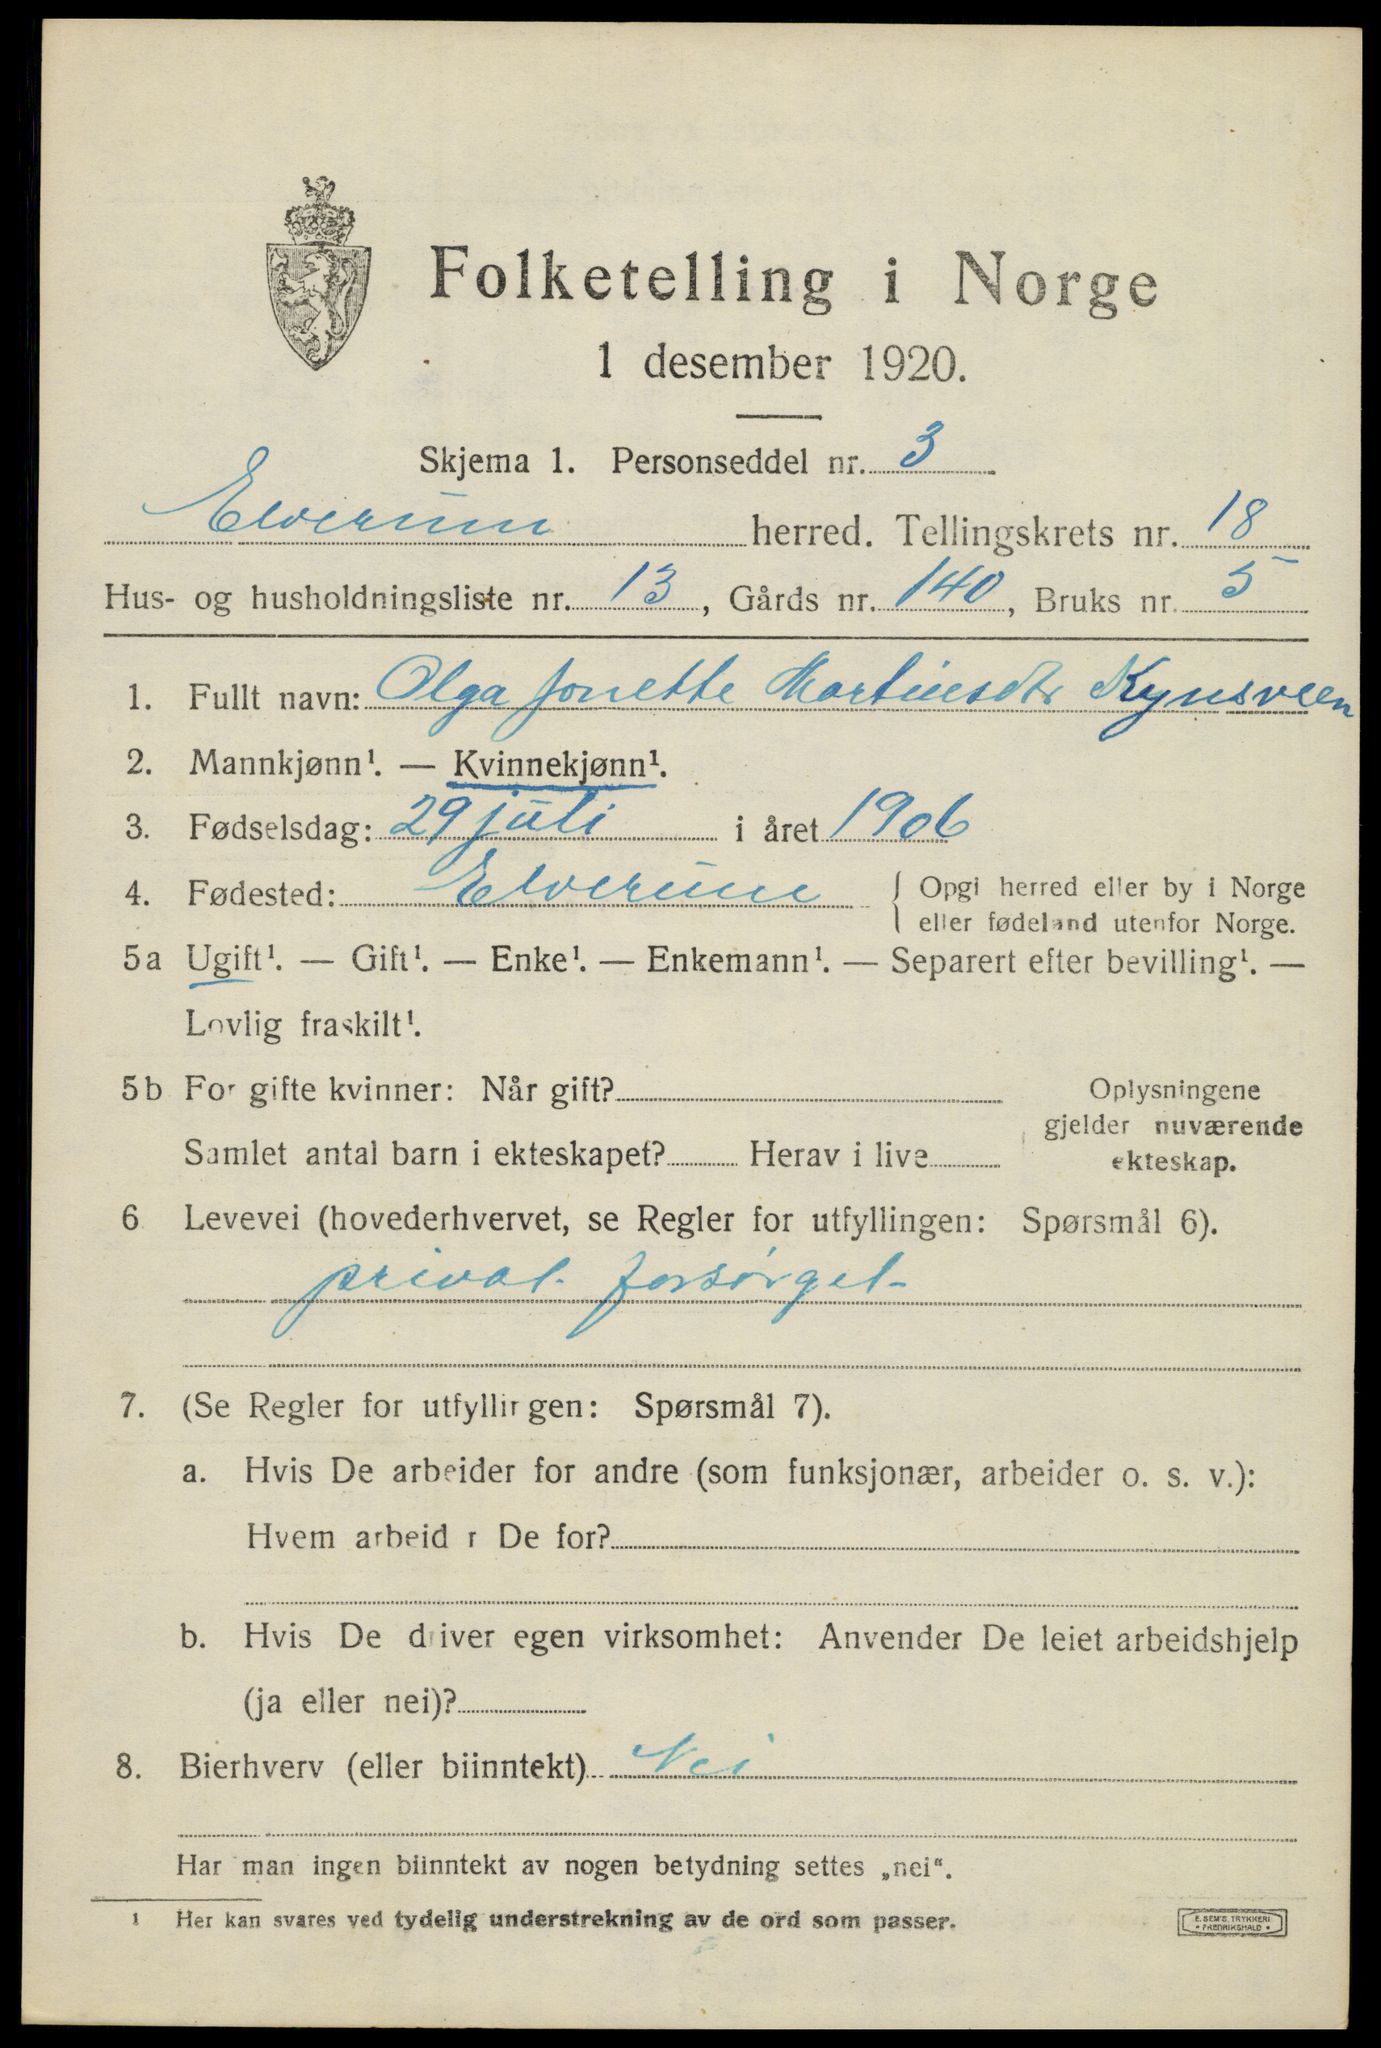 Folketelling i Norge
1 desember 1920.
Skjema 1. Personseddel nr. 3
Elverum herred. Tellingskrets nr. 18
Hus- og husholdningsliste nr. 13, Gårds nr. 140, Bruks nr. 5
1. Fullt navn: Olga Jonette Martinsdtr Kynsveen
2. Mannkjønn¹. — Kvinnekjønn¹.
3. Fødselsdag: 29 juli i året 1906
4. Fødested: Elverum { Opgi herred eller by i Norge
eller fødeland utenfor Norge.
5a Ugift¹. — Gift¹. — Enke¹. — Enkemann¹. — Separert efter bevilling¹. —
Lovlig fraskilt¹.
5b For gifte kvinner: Når gift? Oplysningene
gjelder nuværende
Samlet antal barn i ekteskapet? Herav i live ekteskap.
6 Levevei (hovederhvervet, se Regler for utfyllingen: Spørsmål 6).
privat forsørget
7. (Se Regler for utfyllir gen: Spørsmål 7).
a. Hvis De arbeider for andre (som funksjonær, arbeider o. s. v.):
Hvem arbeid r De for?
b. Hvis De driver egen virksomhet: Anvender De leiet arbeidshjelp
(ja eller nei)?
8. Bierhverv (eller biinntekt) Nei
Har man ingen biinntekt av nogen betydning settes „nei“.
¹ Her kan svares ved tydelig understrekning av de ord som passer.
E. SEM'S TRYKKERI
• FREDRIKSHALD •